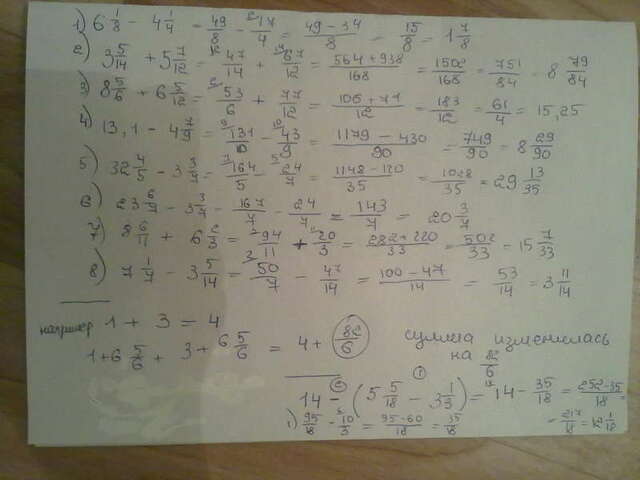 1) 6 1/8 - 4 1/4 = 49/8 - 17/4 = 49-34/8 = 15/8 = 1 7/8
2) 3 5/14 + 5 7/12 = 47/14 + 67/12 = 564+938/168 = 1502/168 = 751/84 = 8 79/84
3) 8 5/6 + 6 5/12 = 53/6 + 77/12 = 106+77/12 = 183/12 = 61/4 = 15,25
4) 13,1 - 4 7/9 = 131/10 - 43/9 = 1179-430/90 = 749/90 = 8 29/90
5) 32 4/5 - 3 3/7 = 164/5 - 24/7 = 1148-120/35 = 1028/35 = 29 13/35
6) 23 6/7 - 3 3/7 = 167/7 - 24/7 = 143/7 = 20 3/7
7) 8 6/11 + 6 2/3 = 94/11 + 20/3 = 282+220/33 = 502/33 = 15 7/33
8) 7 1/7 - 3 5/14 = 50/7 - 47/14 = 100-47/14 = 53/14 = 3 11/14
например 1 + 3 = 4
1+6 5/6 + 3+6 5/6 = 4+ 82/6
сумма изменилась
на 82/6
14 - (5 5/18 - 3 1/3) = 14 - 35/18 = 252-35/18 =
1) 95/18 - 10/3 = 95-60/18 = 35/18
= 217/18 = 12 1/18